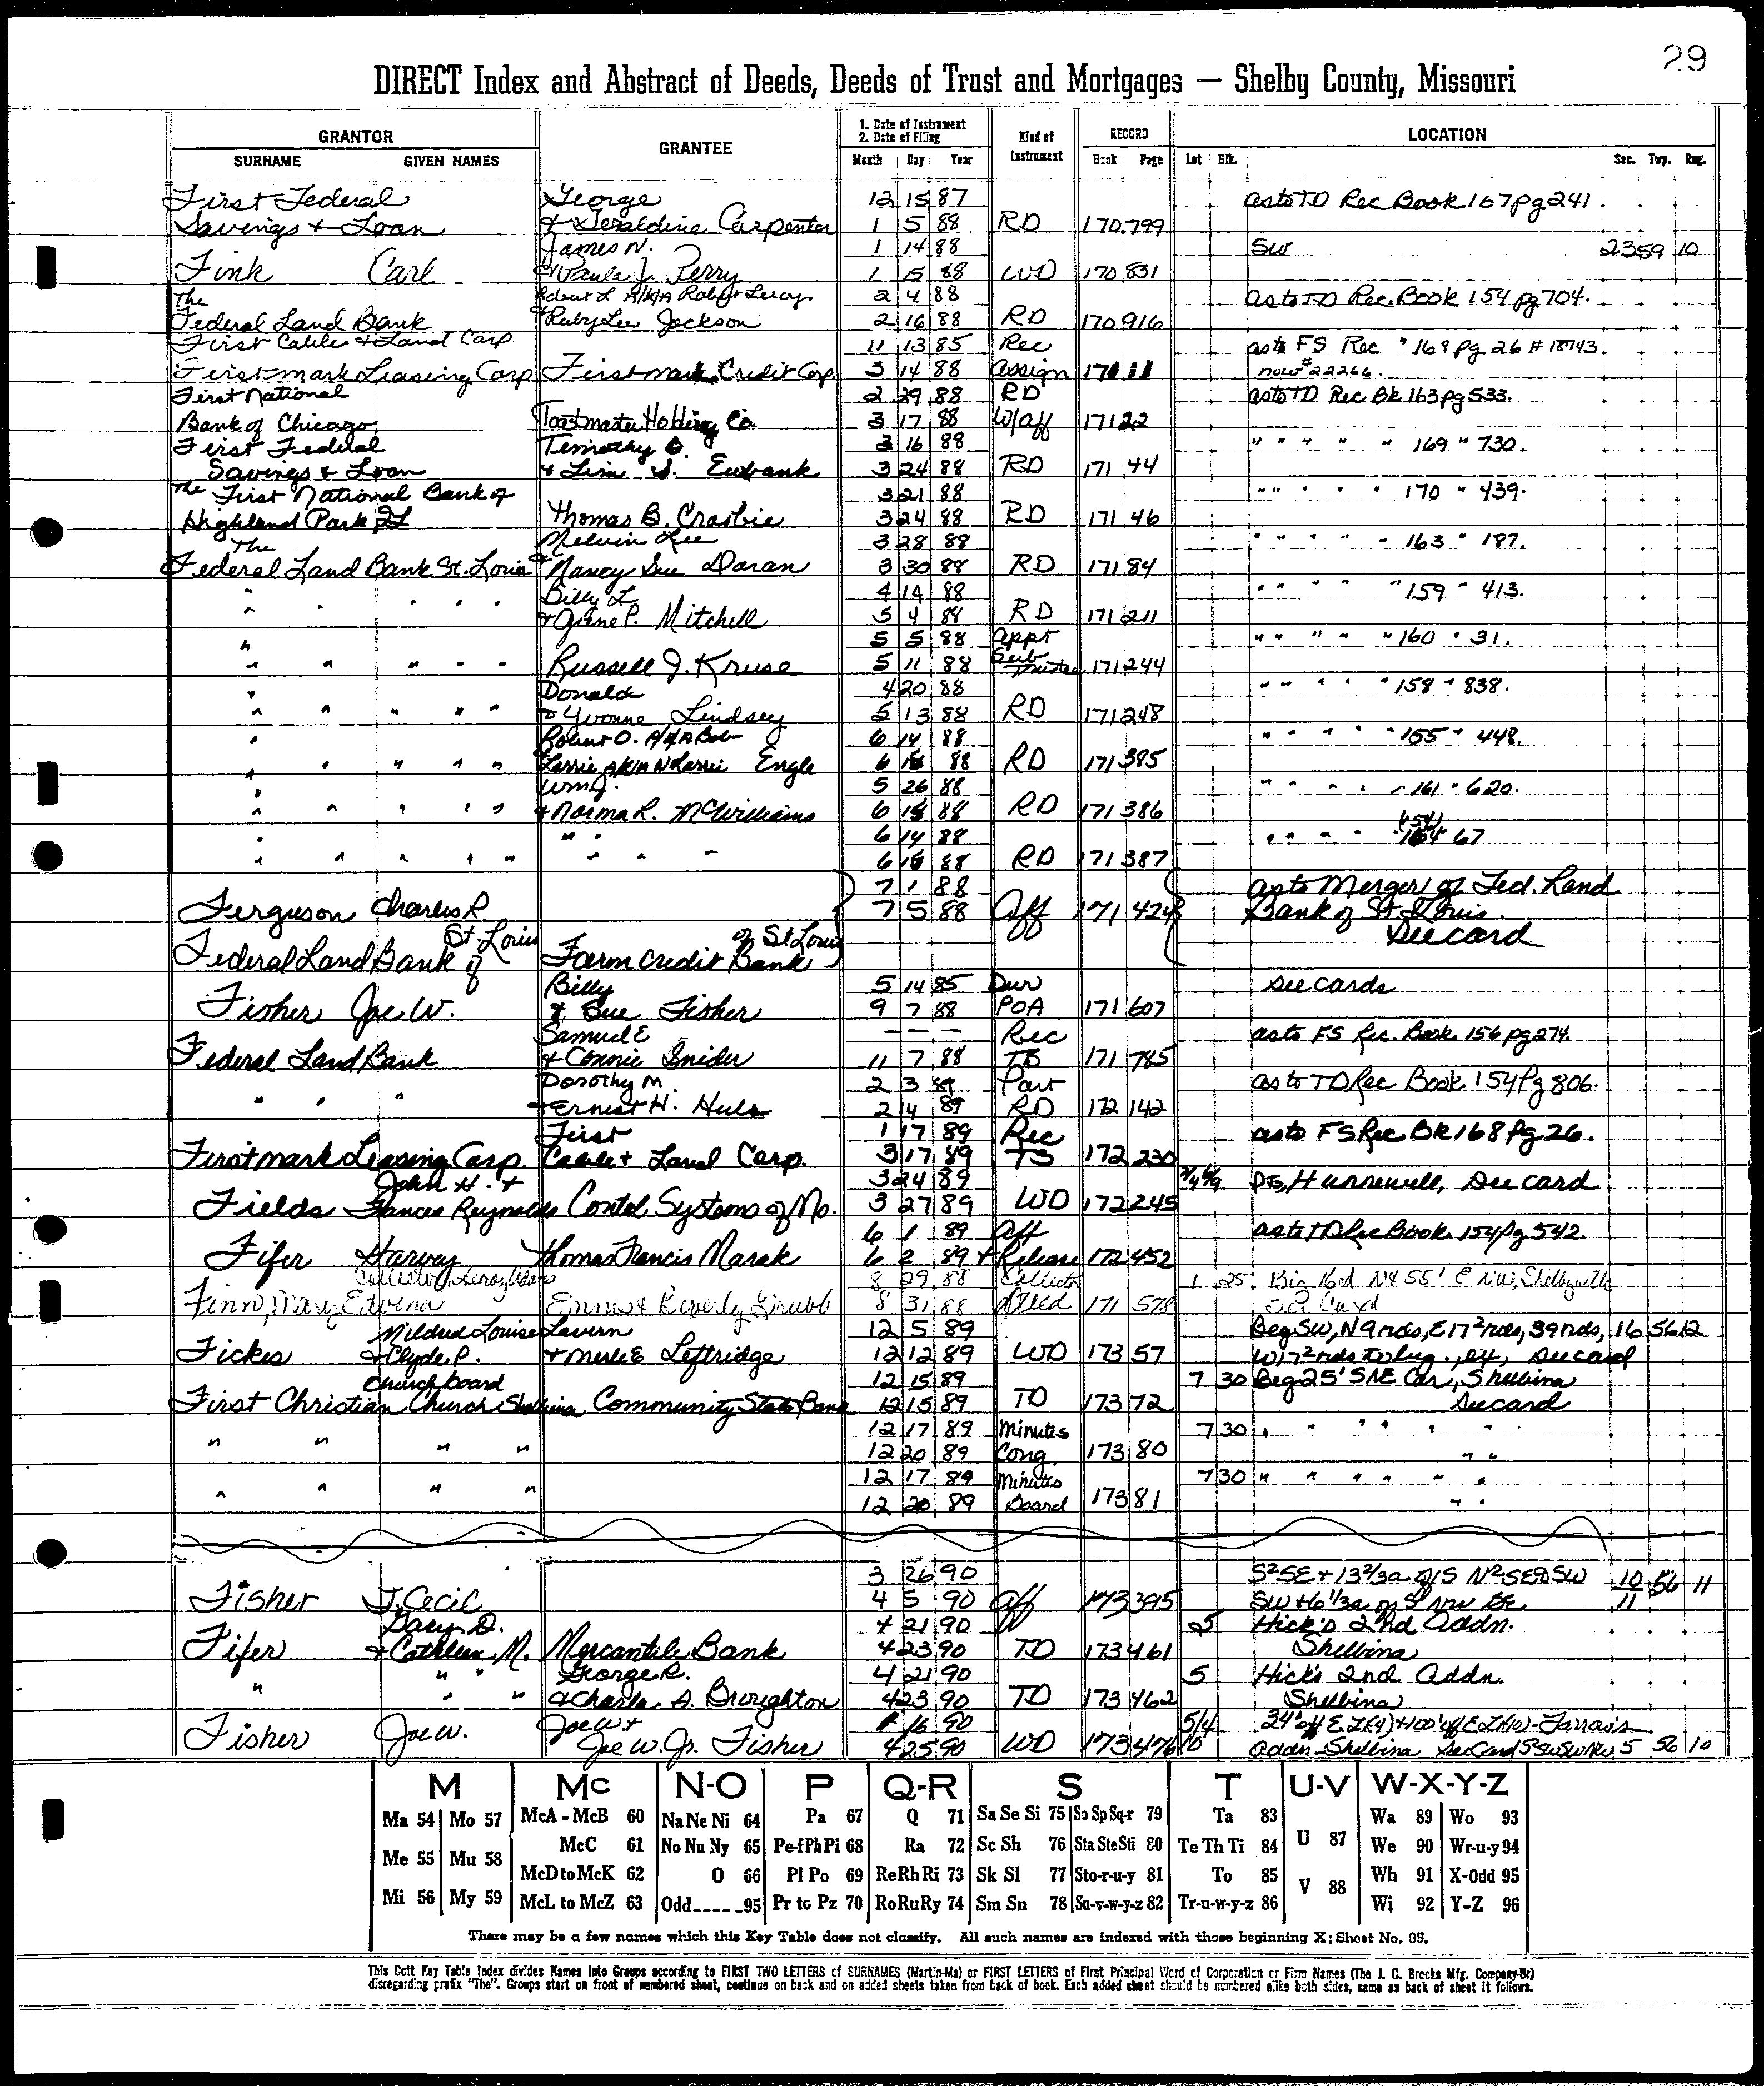 29
DIRECT Index and Abstract of Deeds, Deeds of Trust and Mortgages — Shelby County, Missouri
GRANTOR GRANTEE 1. Date of Instrument 2. Date of Filing Kind of Instrument RECORD LOCATION
SURNAME GIVEN NAMES Month Day Year Book Page Lot Blk. Sec. Twp. Rng.
First Federal George 12 15 87 as to TD Rec Book 167 pg 241
Savings + Loan + Geraldine Carpenter 1 5 88 RD 170 799
James N. 1 14 88 SW 23 59 10
Fink Carl + Paula J. Perry 1 15 88 WD 170 831
The Robert L A/K/A Robert Leroy 2 4 88 as to TD Rec. Book 154 pg 704.
Federal Land Bank + Ruby Lee Jackson 2 16 88 RD 170 916
First Cable + Land Corp. 11 13 85 Rec as to FS Rec " 168 pg 26 # 18743
Firstmark Leasing Corp Firstmark Credit Corp. 3 14 88 Assign 171 11 now # 22266.
First National 2 29 88 RD as to TD Rec Bk 163 pg 533.
Bank of Chicago Toastmaster Holding Co. 3 17 88 W/aff 171 22
First Federal Timothy 3 16 88 " " " " " 169 " 730.
Savings + Loan + Lisa S. Eubank 3 24 88 RD 171 44
The First National Bank of 3 21 88 " " " " " 170 " 439.
Highland Park Il Thomas B. Crosbie 3 24 88 RD 171 46
The Melvin Lee 3 28 88 " " " " " 163 " 187.
Federal Land Bank St. Louis + Nancy Sue Doran 3 30 88 RD 171 84
" " " " " Billy L 4 14 88 " " " " " 159 " 413.
+ Jane P. Mitchell 5 4 88 RD 171 211
" 5 5 88 Appt " " " " " 160 " 31.
" " " " " Russell J. Kruse 5 11 88 Sub Trustee 171 244
" Donald 4 20 88 " " " " " 158 " 838.
" " " " " + Yvonne Lindsey 5 13 88 RD 171 248
" Robert O. A/K/A Bob 6 14 88 " " " " " 155 " 448.
" " " " " Larrie A/K/A N Larrie Engle 6 88 RD 171 385
" Wm J. 5 26 88 " " " " " 161 " 620.
" " " " " + Norma R. McWilliams 6 88 RD 171 386
" " " 6 14 88 " " " " " 154 " 67
" " " " " " " " " 6 88 RD 171 387
7 1 88 as to Merger of Fed. Land
Ferguson Charles R. 7 5 88 Aff 171 424 Bank of St. Louis.
St. Louis of St Louis See card
Federal Land Bank of Farm Credit Bank
Billy 5 14 85 Dur See cards
Fisher Joe W. + Sue Fisher 9 7 88 POA 171 607
Samuel E — — — Rec as to FS Rec. Book 156 pg 274.
Federal Land Bank + Connie Snider 11 7 88 TS 171 785
Dorothy M. 2 3 89 Part as to TD Rec Book 154 Pg 806.
" " " + Ernest H. Huls 2 14 89 RD 172 142
First 1 17 89 Rec as to FS Rec Bk 168 Pg 26.
Firstmark Leasing Corp. Cable + Land Corp. 3 17 89 TS 172 230
John H. + 3 24 89 Pts, Hunnewell, See card
Fields Frances Reynolds Contel Systems of Mo. 3 27 89 WD 172 245
6 1 89 Aff as to TD Rec Book 154 Pg 542.
Fifer Harvey Thomas Francis Marak 6 2 89 + Release 172 452
Collector Leroy 8 29 88 Collect 1 25 Big NW, Shelbyville
Finn, Mary Edwina + Beverly Grubb 8 31 88 Deed 171 578 See Card
Mildred Louise Lavern 12 5 89 Beg SW, N 9 rds, E 17² rds, S 9 rds, 16 56 12
Fickes + Clyde P. + Merle E Leftridge 12 12 89 WD 173 57 W 17² rds to beg., ex, See card
Church board 12 15 89 7 30 Beg 25' S NE Cor, Shelbina
First Christian Church Shelbina Community State Bank 12 15 89 TD 173 72 See card
12 17 89 Minutes 7 30 " " " " " "
" " " " 12 20 89 Cong. 173 80 " "
12 17 89 Minutes 7 30 " " " " " "
" " " " 12 20 89 Board 173 81 " "
3 26 90 S²SE + 13⅔a of S N²SE SW 10 56 11
Fisher J. Cecil 4 5 90 Aff 173 395 SW + 6⅓a on S NW SE 11
Gary D. 4 21 90 5 Hick's 2nd Addn.
Fifer + Cathleen M. Mercantile Bank 4 23 90 TD 173 461 Shelbina
" " George R. 4 21 90 5 Hick's 2nd Addn.
" " " + Charla A. Broughton 4 23 90 TD 173 462 Shelbina
Joe W + 16 90 5/4 24' off E + 100' off E - Farrow's
Fisher Joe W. Joe W. Jr. Fisher 4 25 90 WD 173 476 10 Addn Shelbina See Card 5 56 10
M Mc N-O P Q-R S T U-V W-X-Y-Z
Ma 54 Mo 57 McA - McB 60 Na Ne Ni 64 Pa 67 Q 71 Sa Se Si 75 So Sp Sq-r 79 Ta 83 U 87 Wa 89 Wo 93
Me 55 Mu 58 McC 61 No Nu Ny 65 Pe-f Ph Pi 68 Ra 72 Sc Sh 76 Sta Ste Sti 80 Te Th Ti 84 We 90 Wr-u-y 94
McD to McK 62 O 66 Pl Po 69 Re Rh Ri 73 Sk Sl 77 Sto-r-u-y 81 To 85 V 88 Wh 91 X-Odd 95
Mi 56 My 59 McL to McZ 63 Odd 95 Pr to Pz 70 Ro Ru Ry 74 Sm Sn 78 Su-v-w-y-z 82 Tr-u-w-y-z 86 Wi 92 Y-Z 96
There may be a few names which this Key Table does not classify. All such names are indexed with those beginning X; Sheet No. 95.
This Cott Key Table Index divides Names into Groups according to FIRST TWO LETTERS of SURNAMES (Martin-Ma) or FIRST LETTERS of First Principal Word of Corporation or Firm Names (The J. C. Brocks Mfg. Company-Br)
disregarding prefix "The". Groups start on front of numbered sheet, continue on back and on added sheets taken from back of book. Each added sheet should be numbered alike both sides, same as back of sheet it follows.